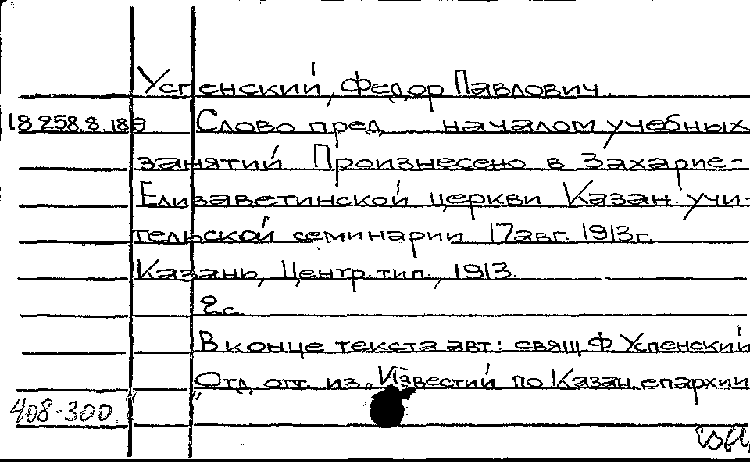 Успенский, Федор Павлович.
18.258.8.189 Слово пред началом учебных
занятий Произнесено в Захарие-
Елизаветинской церкви Казан учи-
тельской семинарии 17 авг. 1913 г.
Казань, Центр. тип., 1913.
2 с.
В конце текста авт: свящ Ф Успенский
Отд. отт. из „Известий по Казан. епархии"
408-300